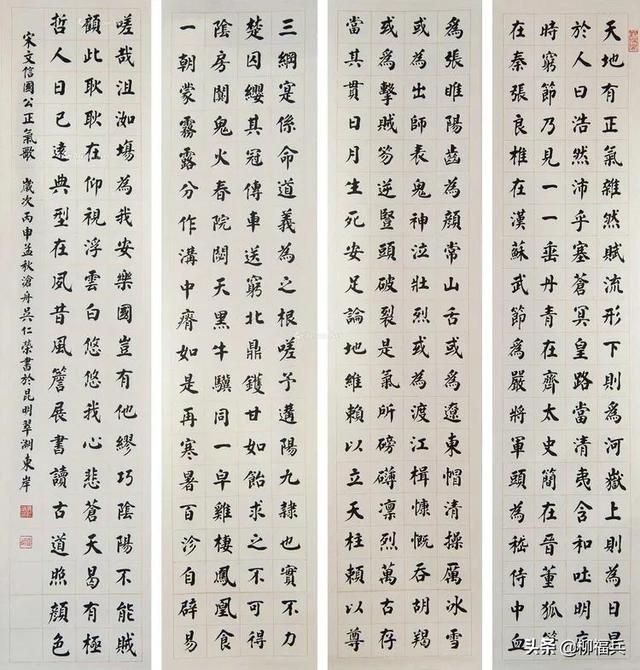 天地有正氣雜然賦流形下則為河嶽上則為日星
於人曰浩然沛乎塞蒼冥皇路當清夷含和吐明庭
時窮節乃見一一垂丹青在齊太史簡在晉董狐筆
在秦張良椎在漢蘇武節為嚴將軍頭為嵇侍中血
為張睢陽齒為顏常山舌或為遼東帽清操厲冰雪
或為出師表鬼神泣壯烈或為渡江楫慷慨吞胡羯
或為擊賊笏逆豎頭破裂是氣所磅礴凜烈萬古存
當其貫日月生死安足論地維賴以立天柱賴以尊
三綱寔係命道義為之根嗟予遘陽九隸也實不力
楚囚纓其冠傳車送窮北鼎鑊甘如飴求之不可得
陰房闃鬼火春院閟天黑牛驥同一皁雞棲鳳凰食
一朝蒙霧露分作溝中瘠如是再寒暑百沴自辟易
嗟哉沮洳場為我安樂國豈有他繆巧陰陽不能賊
顧此耿耿在仰視浮雲白悠悠我心悲蒼天曷有極
哲人日已遠典型在夙昔風簷展書讀古道照顏色
宋文信國公正氣歌 歲次丙申孟秋滄舟吳仁榮書於昆明翠湖東岸
头条 @柳福兵